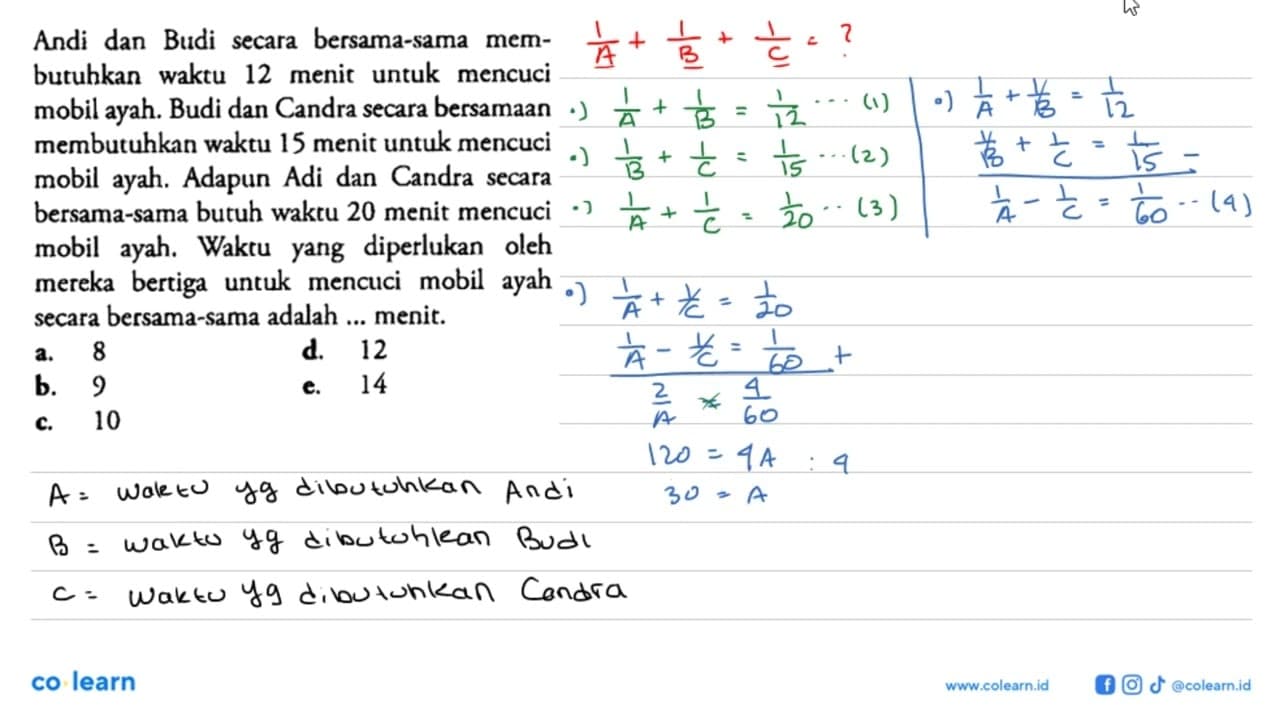 Andi dan Budi secara bersama-sama mem-
butuhkan waktu 12 menit untuk mencuci
mobil ayah. Budi dan Candra secara bersamaan
membutuhkan waktu 15 menit untuk mencuci
mobil ayah. Adapun Adi dan Candra secara
bersama-sama butuh waktu 20 menit mencuci
mobil ayah. Waktu yang diperlukan oleh
mereka bertiga untuk mencuci mobil ayah
secara bersama-sama adalah ... menit.
a. 8 d. 12
b. 9 e. 14
c. 10
1/A + 1/B + 1/C = ?
•) 1/A + 1/B = 1/12 ... (1)
•) 1/B + 1/C = 1/15 ... (2)
•) 1/A + 1/C = 1/20 .. (3)
•) 1/A + 1/B = 1/12
1/B + 1/C = 1/15 -
1/A - 1/C = 1/60 .. (4)
•) 1/A + 1/C = 1/20
1/A - 1/C = 1/60 +
2/A = 4/60
120 = 4A : 4
30 = A
A = waktu yg dibutuhkan Andi
B = waktu yg dibutuhkan Budi
C = waktu yg dibutuhkan Candra
co learn
www.colearn.id
@colearn.id